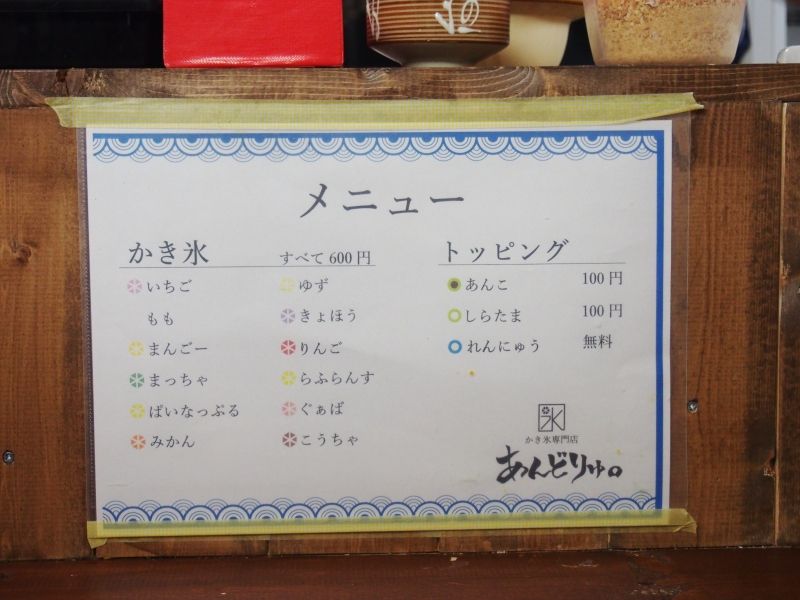 メニュー
かき氷 すべて600円
いちご
もも
まんごー
まっちゃ
ぱいなっぷる
みかん
ゆず
きょほう
りんご
らふらんす
ぐぁば
こうちゃ
トッピング
あんこ 100円
しらたま 100円
れんにゅう 無料
氷
かき氷専門店
あんどりゅ。